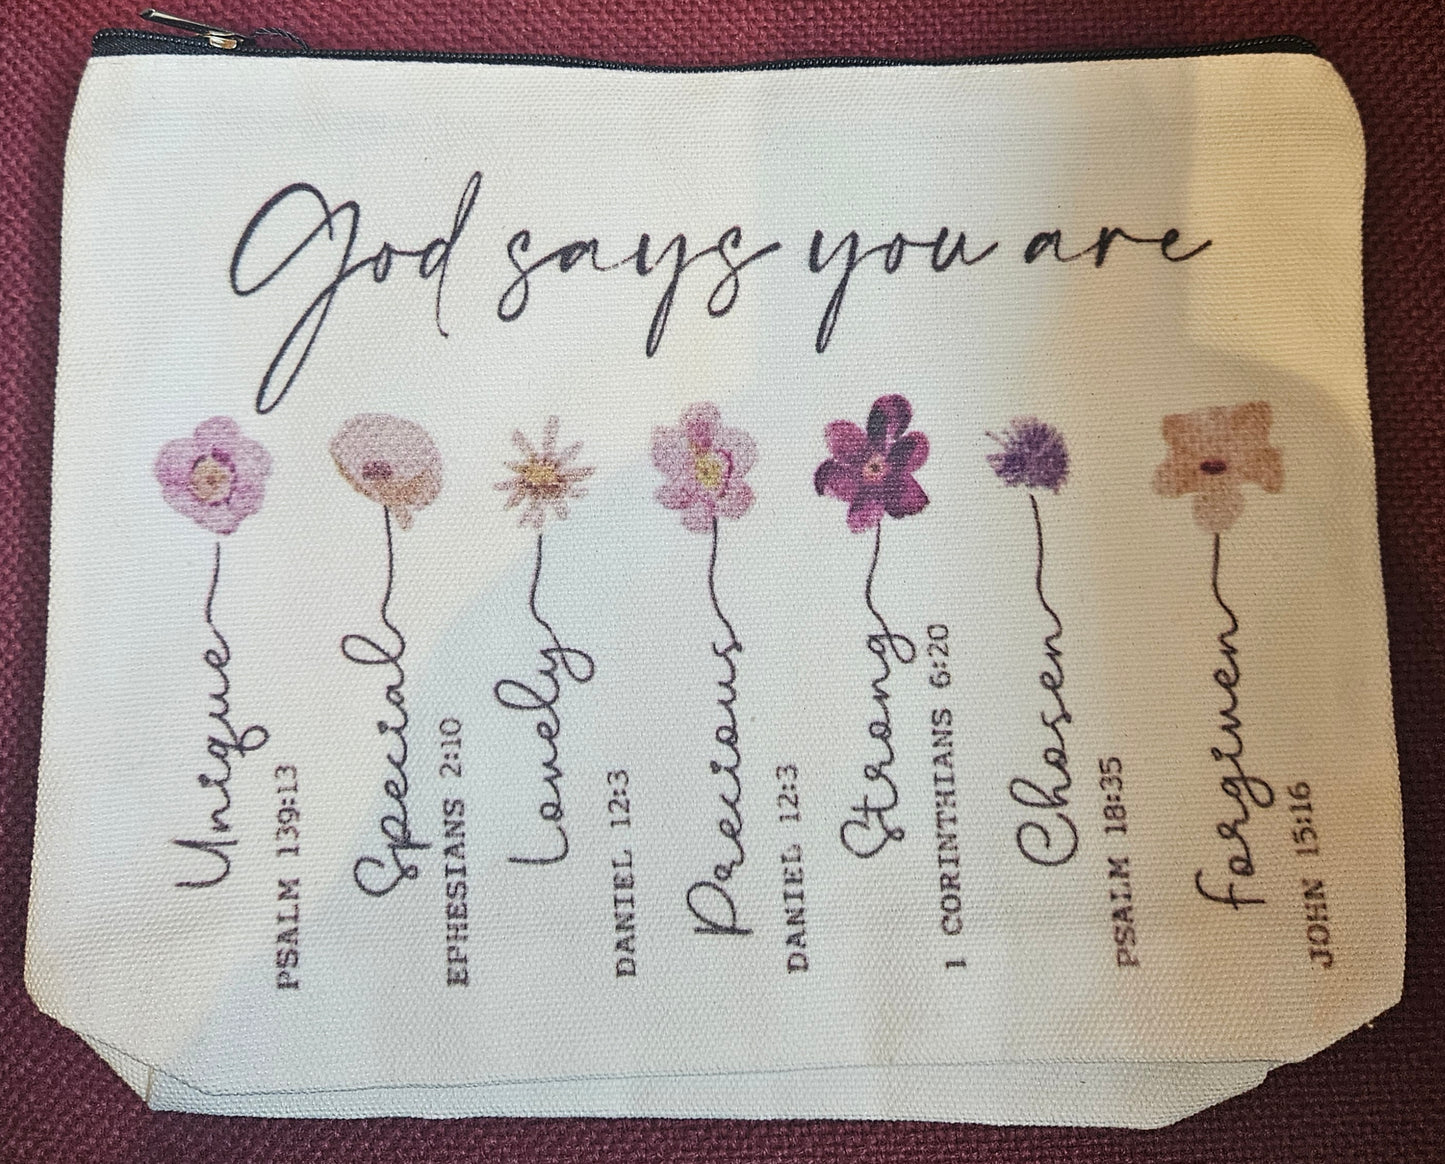 God says you are
Unique
PSALM 139:13
Special
EPHESIANS 2:10
Lovely
DANIEL 12:3
Precious
DANIEL 12:3
Strong
1 CORINTHIANS 6:20
Chosen
PSALM 18:35
forgiven
JOHN 15:16